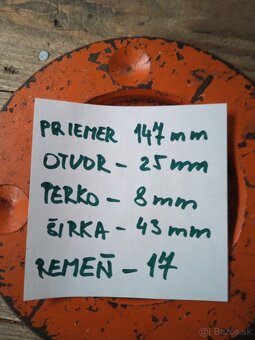 PRIEMER 147mm
OTVOR - 25mm
PERKO - 8mm
ŠIRKA - 43mm
REMEŇ - 17
Bazos.sk